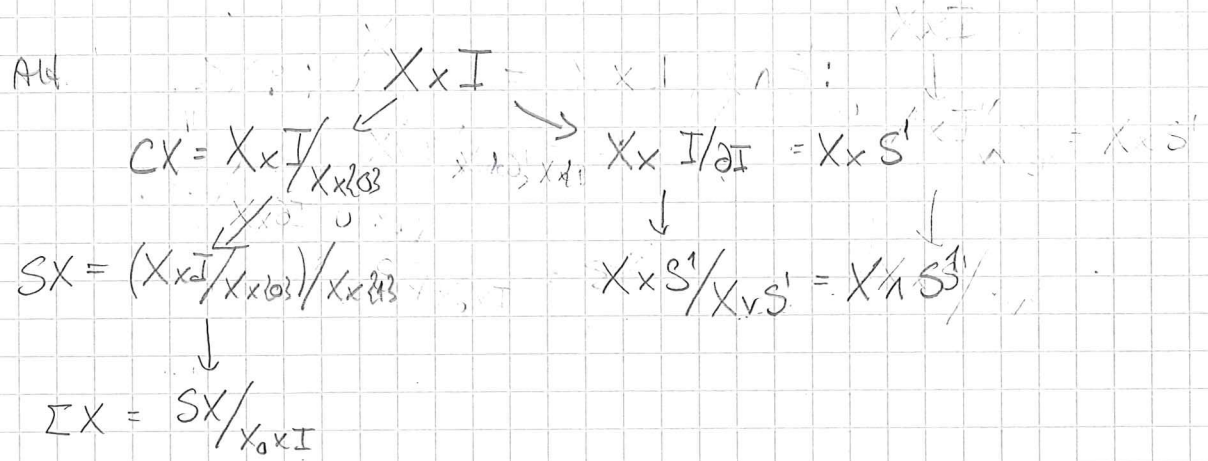 X×I
CX = X×I/X×{0}
X× I/∂I = X×S¹
SX = (X×I/X×{0})/X×{1}
X×S¹/X∨S¹ = X∧S¹
ΣX = SX/x₀×I